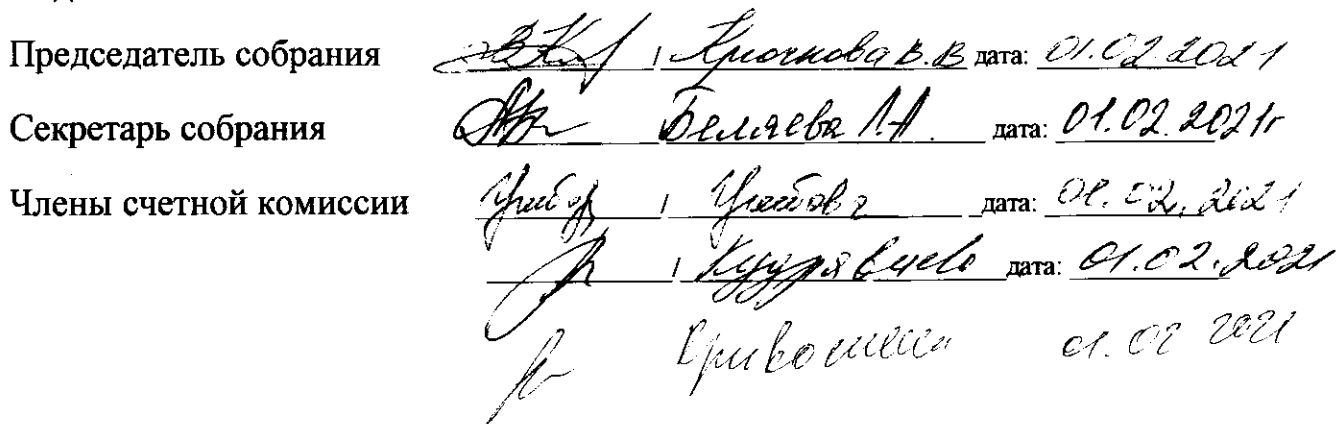 Председатель собрания / Крючкова В.В дата: 01.02.2021
Секретарь собрания Беляева Л.А. дата: 01.02.2021г
Члены счетной комиссии / дата: 01.02.2021
/ Кудрявцева дата: 01.02.2021
01.02 2021